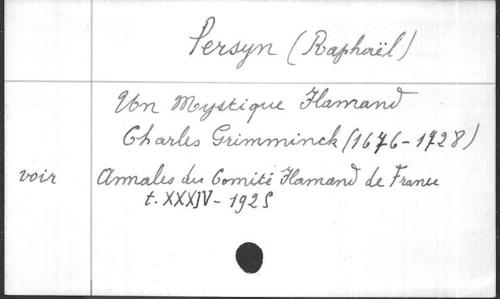 Persyn (Raphaël)
Un Mystique Flamand
Charles Grimminck (1676-1728)
voir Annales du Comité Flamand de France
t. XXXIV - 1925